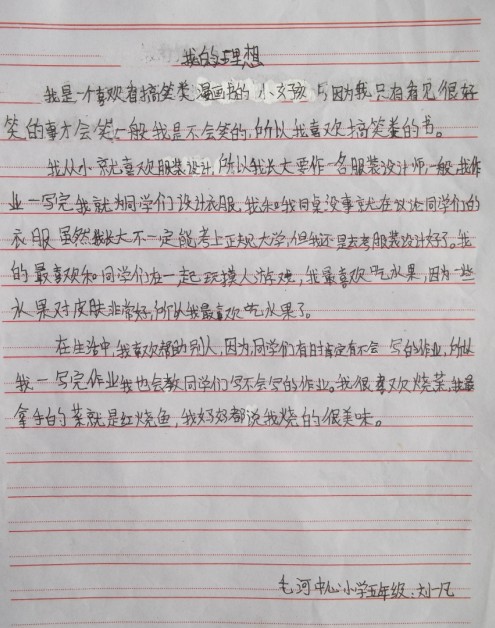 我的理想
我是一个喜欢看搞笑类漫画书的小女孩,因为我只有看见很好
笑的事才会笑,一般我是不会笑的,所以我喜欢搞笑类的书。
我从小就喜欢服装设计,所以我长大要作一名服装设计师,一般我作
业一写完我就为同学们设计衣服,我和我同桌没事就在议论同学们的
衣服虽然我长大不一定能考上正规大学,但我还是去考服装设计好了。我
的最喜欢和同学们在一起玩摸人游戏,我最喜欢吃水果,因为一些
水果对皮肤非常好,所以我最喜欢吃水果了。
在生活中,我喜欢帮助别人,因为同学们有时肯定有不会写的作业,所以
我一写完作业我也会教同学们写不会写的作业。我很喜欢烧菜,我最
拿手的菜就是红烧鱼,我妈妈都说我烧的很美味。
七河中心小学五年级:刘一凡